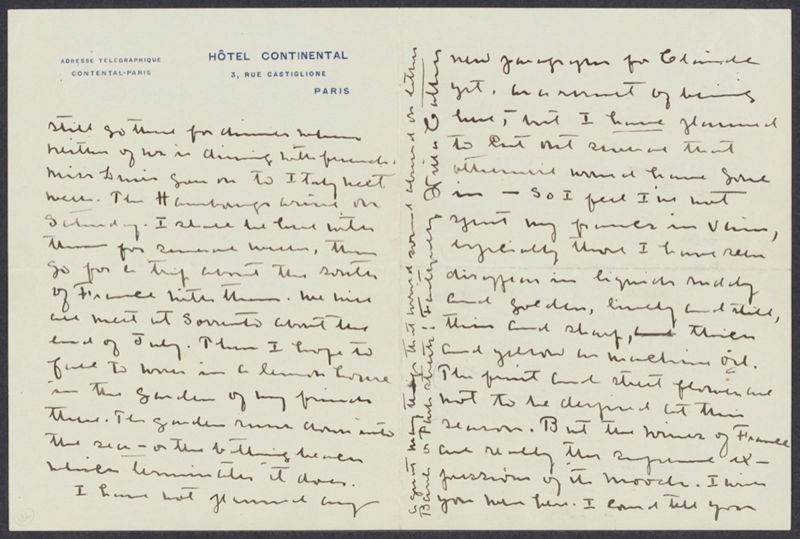 ADRESSE TÉLÉGRAPHIQUE
CONTENTAL-PARIS
HÔTEL CONTINENTAL
3, RUE CASTIGLIONE
PARIS
still go there for dinner when
neither of us is dining with friends.
Miss Lewis goes on to Italy next
week. The Hambourgs arrive on
Saturday. I shall be here with
them for several weeks, then
go for a trip about the south
of France with them. We will
all meet at Sorrento about the
end of July. Then I hope to
fall to work in a lemon house
in the garden of my friends
there. The garden runs down into
the sea - or the bathing beach
which terminates it does.
I have not planned any
new paragraphs for Claude
yet, as a result of being
here, but I have planned
to cut out several that
otherwise would have gone
in — So I feel I've not
spent my francs in vain,
especially those I have seen
disappear in liquids ruddy
and golden, lively and still,
thin and sharp, thick
and yellow as machine oil.
The fruit and street flowers are
not to be despised at this
season. But the wines of France
are really the supreme ex-
pression of its moods. I wish
you were here. I could tell you
a great many things that would sound absurd on letters
Bank or Park streets! Faithfully, Willa Cather